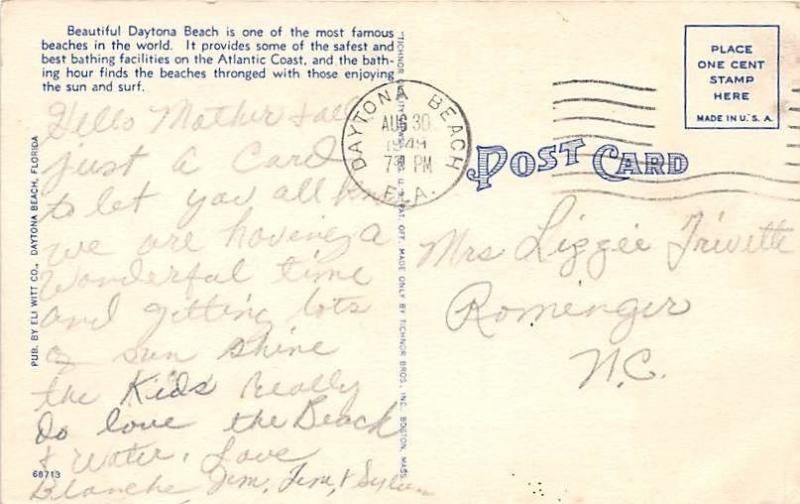 Beautiful Daytona Beach is one of the most famous
beaches in the world. It provides some of the safest and
best bathing facilities on the Atlantic Coast, and the bath-
ing hour finds the beaches thronged with those enjoying
the sun and surf.
Hello Mother & all
just a Card
to let you all know
we are having a
wonderful time
and getting lots
of sun shine
the Kids really
do love the Beach
& water. Love
Blanche Jim,
PUB. BY ELI WITT CO., DAYTONA BEACH, FLORIDA
68713
"TICHNOR QUALITY VIEWS," REG. U. S. PAT. OFF. MADE ONLY BY TICHNOR BROS., INC., BOSTON, MASS.
DAYTONA BEACH
AUG 30
1949
7 PM
FLA.
PLACE
ONE CENT
STAMP
HERE
MADE IN U. S. A.
POST CARD
Mrs Lizzie Trivette
Rominger
N.C.